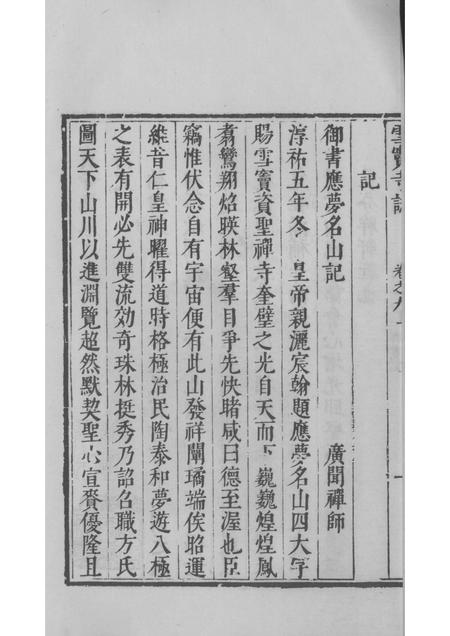 雪竇寺誌 卷之九 一
記
御書應夢名山記 廣聞禪師
淳祐五年冬 皇帝親灑宸翰題應夢名山四大字
賜雪竇資聖禪寺奎璧之光自天而下巍巍煌煌鳳
翥鸞翔焰暎林壑羣目爭先快睹咸曰德至渥也臣
竊惟伏念自有宇宙便有此山發祥闡瑞端俟昭運
維昔仁皇神曜得道時格極治民陶泰和夢遊八極
之表有開必先雙流効奇珠林挺秀乃詔名職方氏
圖天下山川以進淵覽超然默契聖心宣賚優隆且